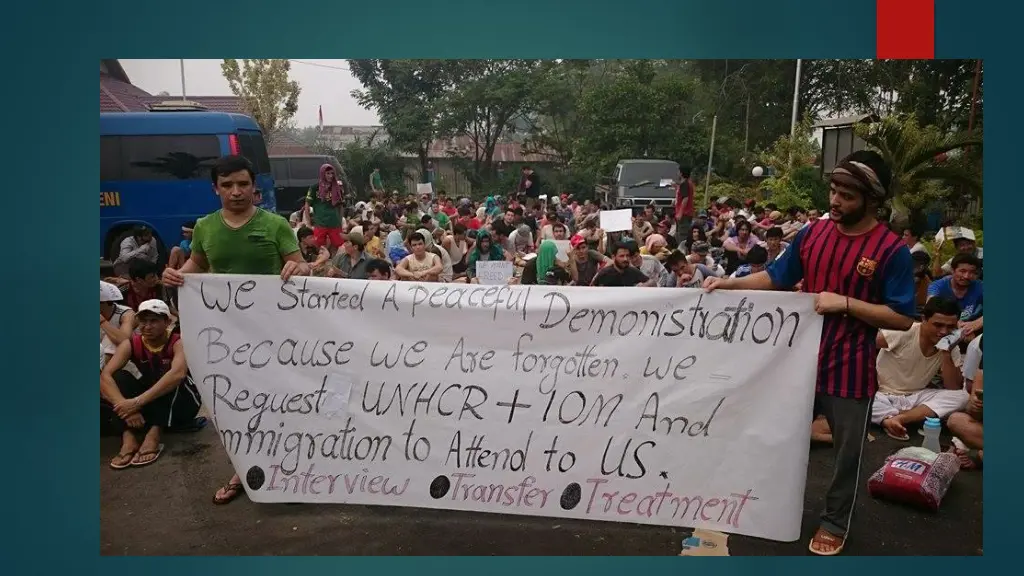 ENI
We Started A peaceful Demonistration
Because we Are forgotten. we
Request UNHCR + IOM And
Immigration to Attend to US.
Interview Transfer Treatment